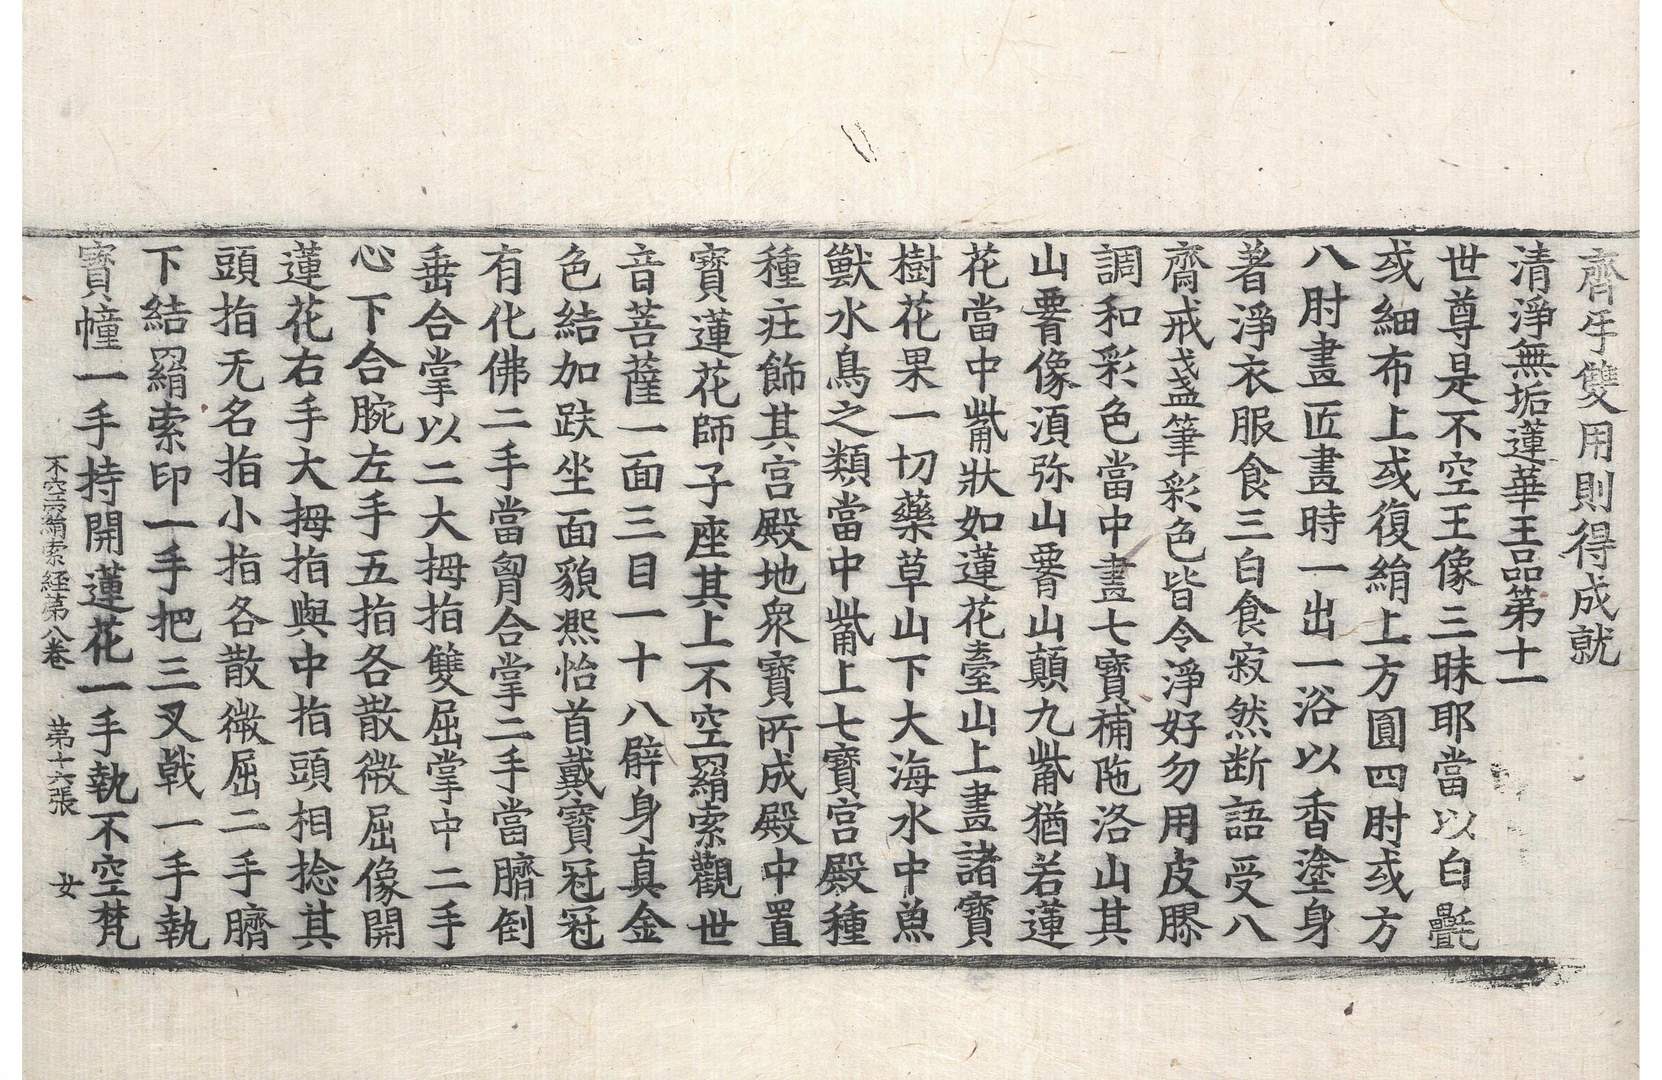 齊手雙用則得成就
清淨無垢蓮華王品第十一
世尊是不空王像三昧耶當以白㲲
或細布上或復絹上方圓四肘或方
八肘畫匠畫時一出一浴以香塗身
著淨衣服食三白食寂然断語受八
齋戒盞筆彩色皆令淨好勿用皮膠
調和彩色當中畫七寶補陁洛山其
山䙅像湏弥山䙅山顛九㭰猶若蓮
花當中㭰狀如蓮花臺山上畫諸寶
樹花果一切藥草山下大海水中魚
獸水鳥之類當中㭰上七寶宫殿種
種庄飾其宫殿地衆寶所成殿中置
寶蓮花師子座其上不空羂索觀世
音菩薩一面三目一十八臂身真金
色結加趺坐面貌熈怡首戴寶冠冠
有化佛二手當胷合掌二手當臍倒
垂合掌以二大拇指雙屈掌中二手
心下合腕左手五指各散微屈像開
蓮花右手大拇指與中指頭相捻其
頭指无名指小指各散微屈二手臍
下結羂索印一手把三叉戟一手執
寶幢一手持開蓮花一手執不空梵
不空羂索経第八巻　第十六張　女